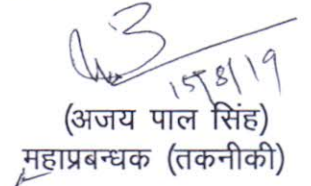 15/8/19
(अजय पाल सिंह)
महाप्रबन्धक (तकनीकी)